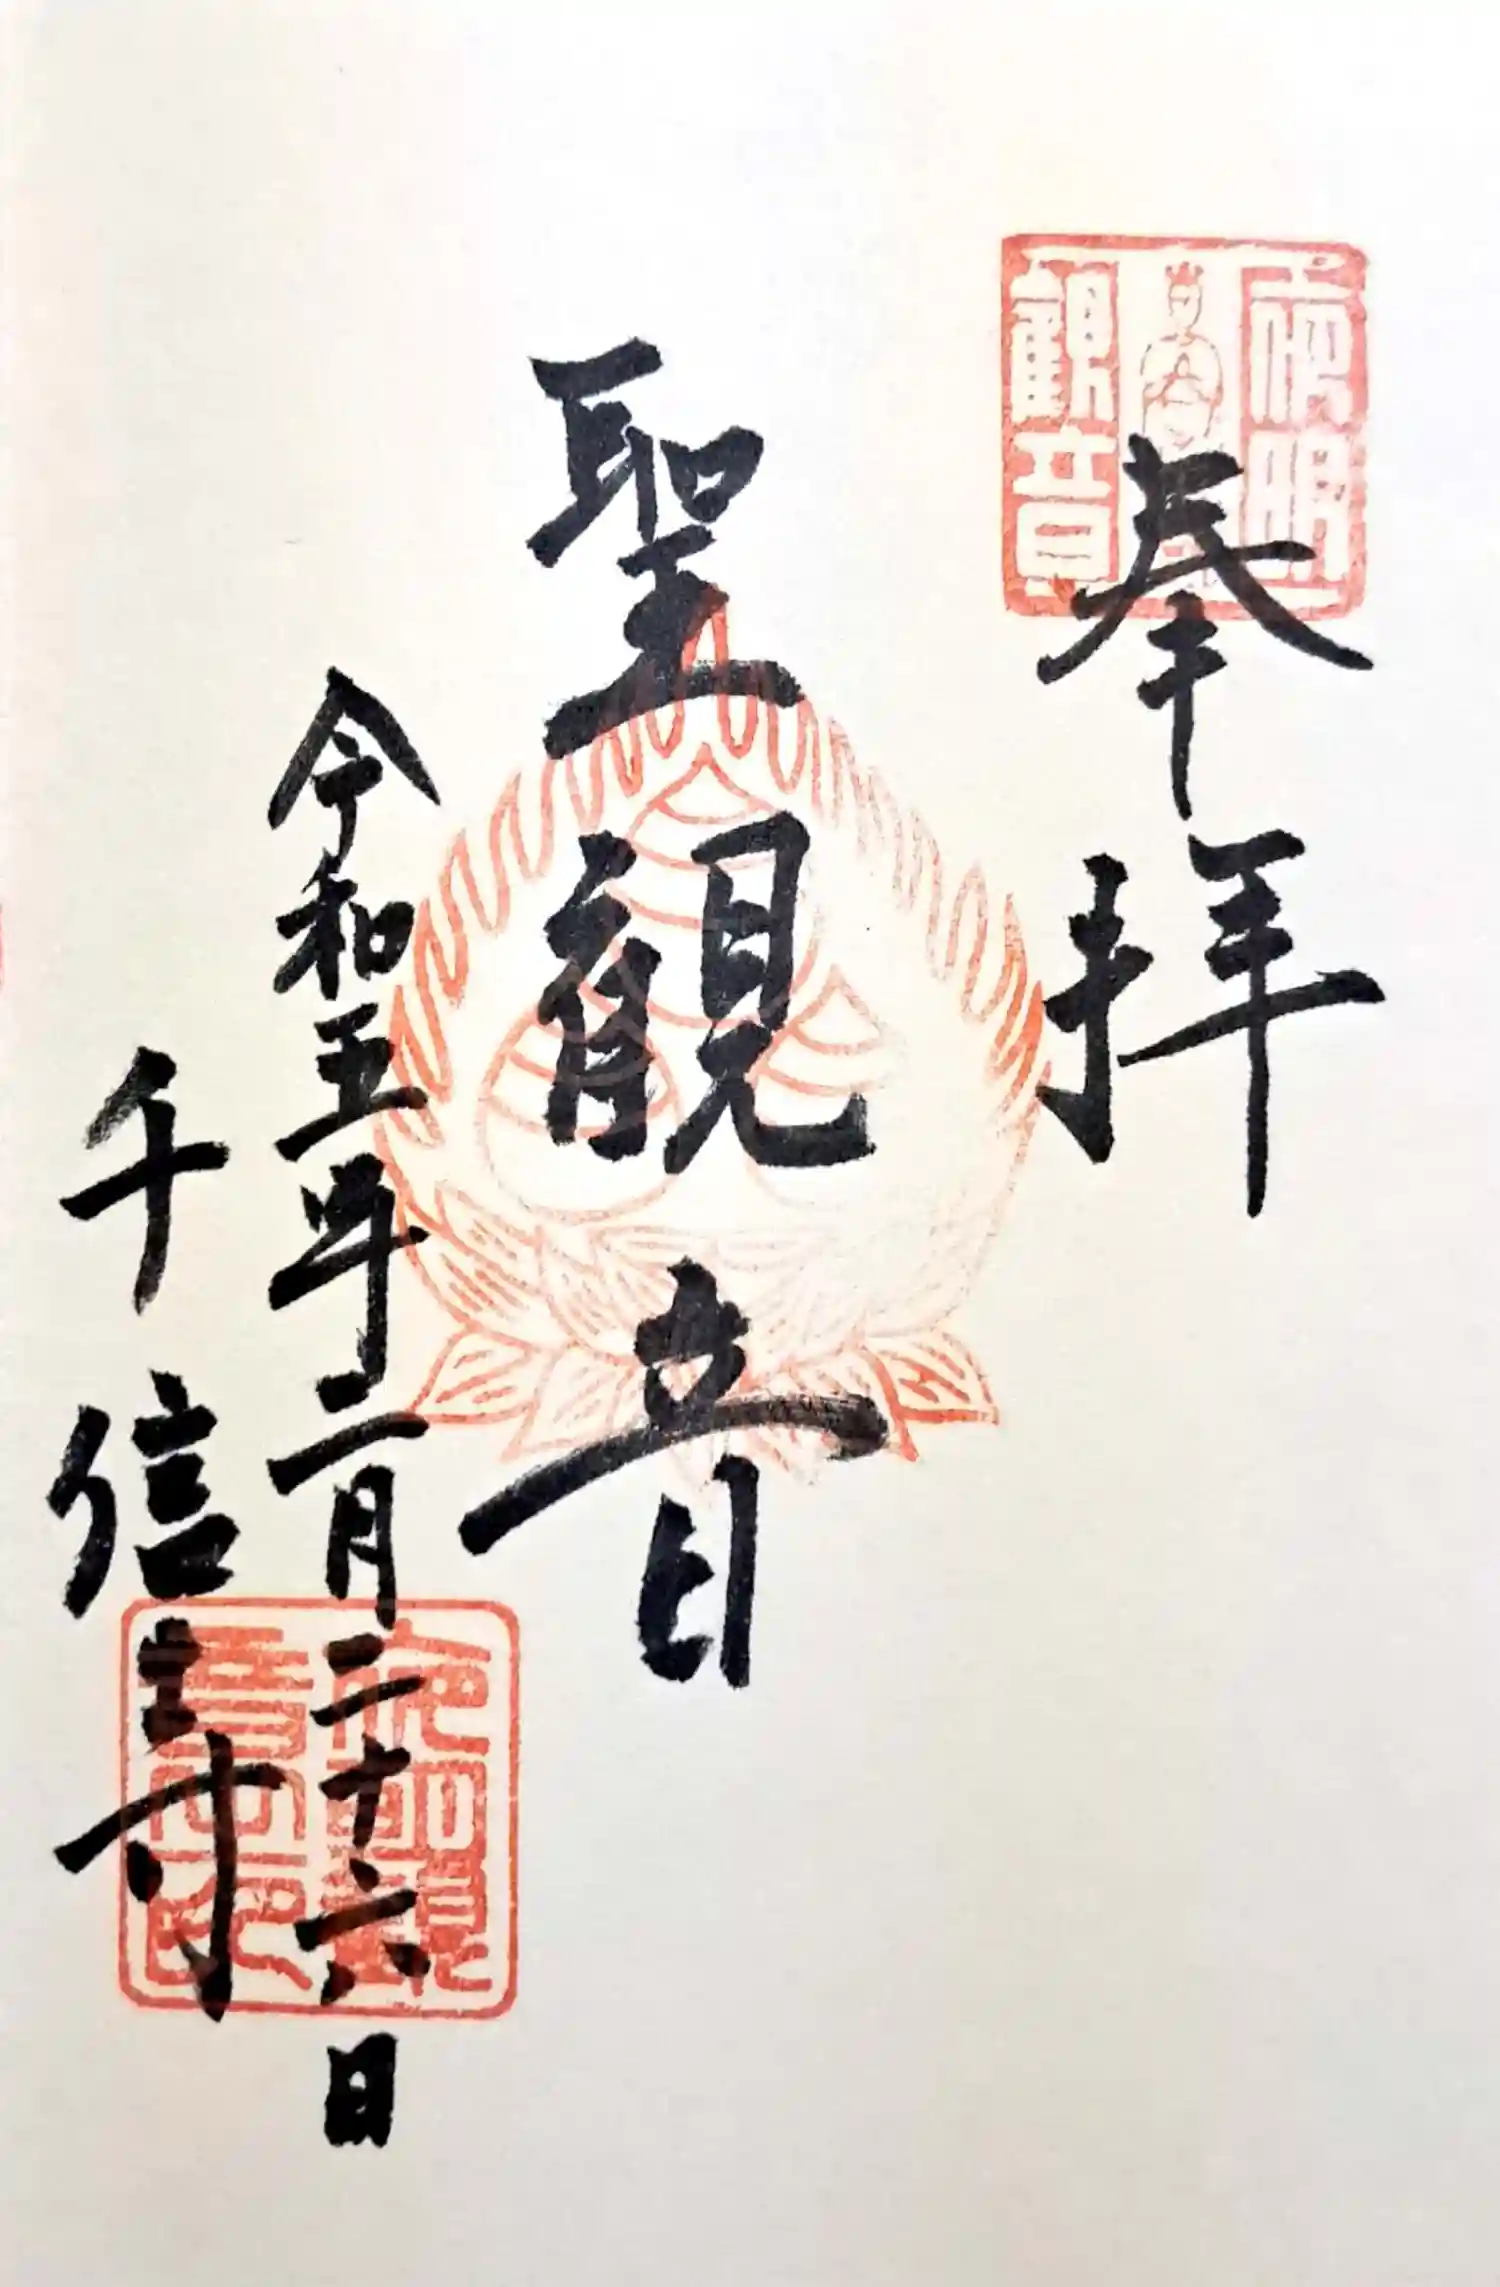 奉拝
聖観音
令和五年二月二十六日
千信寺
夜明
観音